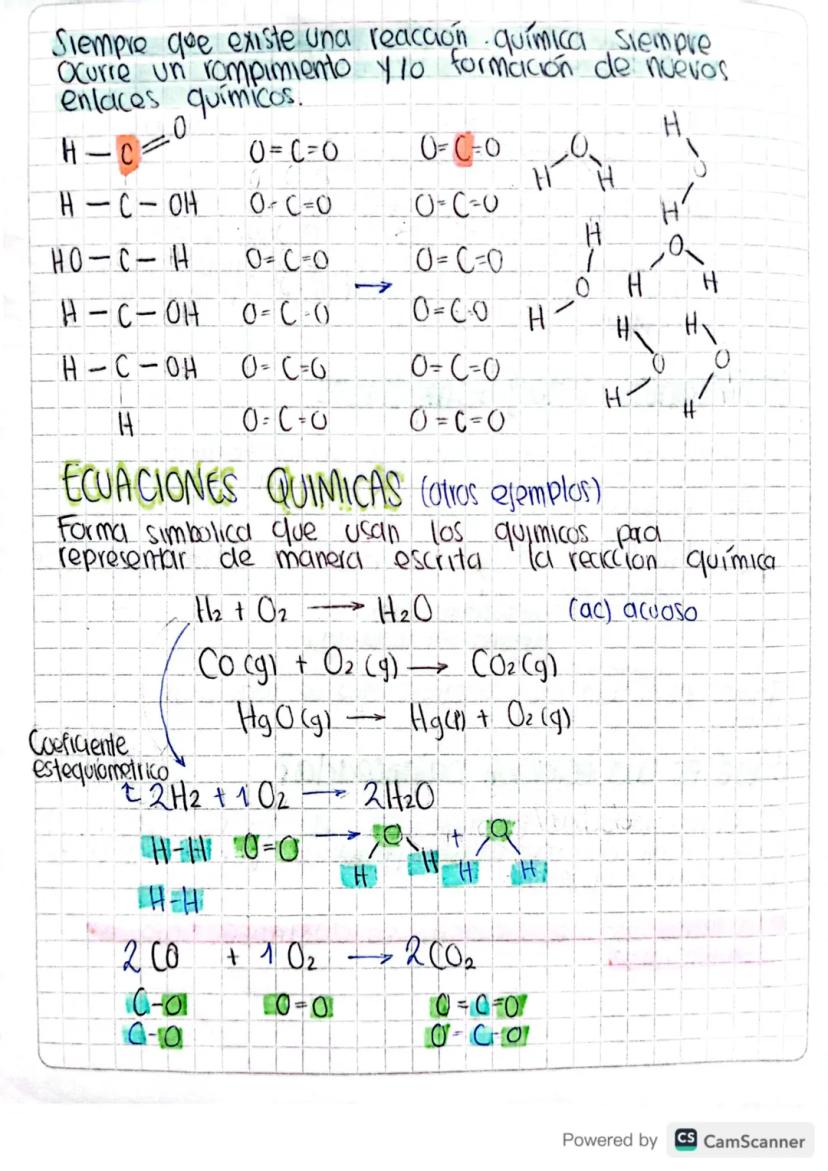 Siempre que existe una reacción química siempre
ocurre un rompimiento y/o formación de nuevos
enlaces químicos.
H — C = O    O = C = O    O = C = O    O H H    H O H
H — C — OH    O = C = O    O = C = O
HO — C — H    O = C = O    O = C = O    H O H    O H H
H — C — OH    O = C - O → O = C - O
H — C — OH    O = C = O    O = C = O    H O H    H O H
H    O = C = O    O = C = O
ECUACIONES QUIMICAS (otros ejemplos)
Forma simbolica que usan los quimicos para
representar de manera escrita la reaccion química
H2 + O2 → H2O (ac) acuoso
CO (g) + O2 (g) → CO2 (g)
HgO (g) → Hg(l) + O2 (g)
Coeficiente
estequiometrico
2H2 + 1 O2 → 2H2O
H-H O=O → H O H + H O H
H-H
2 CO + 1 O2 → 2 CO2
C-O O=O O=C=O
C-O O-C-O
Powered by CS CamScanner